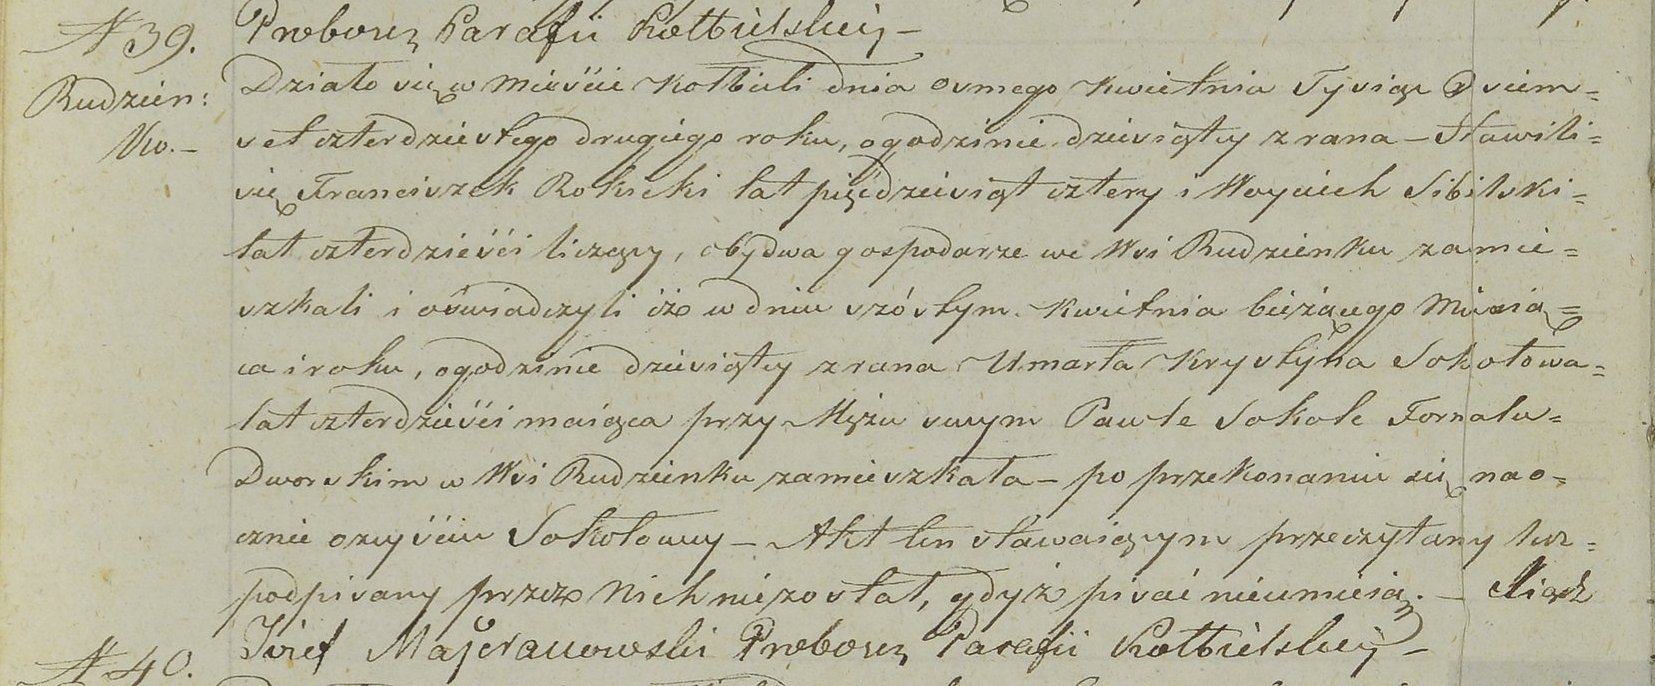 Proboszcz Parafii Kołbielskiéj –
N 39.
Rudzien:
ko. –
Działo się w Mieście Kołbieli dnia osmego Kwietnia Tysiąc Osiem=
set czterdziestego drugiego roku, o godzinie dziesiątey z rana – Stawili=
się Franciszek Rokicki lat pięćdziesiąt cztery i Woyciech Sibilski=
lat czterdzieści liczący, obydwa gospodarze we Wsi Rudzienku zamie=
szkali i oświadczyli iż w dniu szóstym Kwietnia bieżącego Miesią=
ca i roku, o godzinie dziesiątey z rana Umarła Krystyna Sokołowa=
lat czterdzieści maiąca przy Mężu swym Pawle Sokole Fornalu=
Dworskim w Wsi Rudzienku zamieszkała – po przekonaniu się nao=
cznie o zeyściu Sokołowy – Akt ten stawaiącym przeczytany lecz=
podpisany przez Nich niezostał, gdyż pisać nieumieią. – Xiądz
Józef Majeranowski Proboszcz Parafii Kołbielskiéj –
N 40.